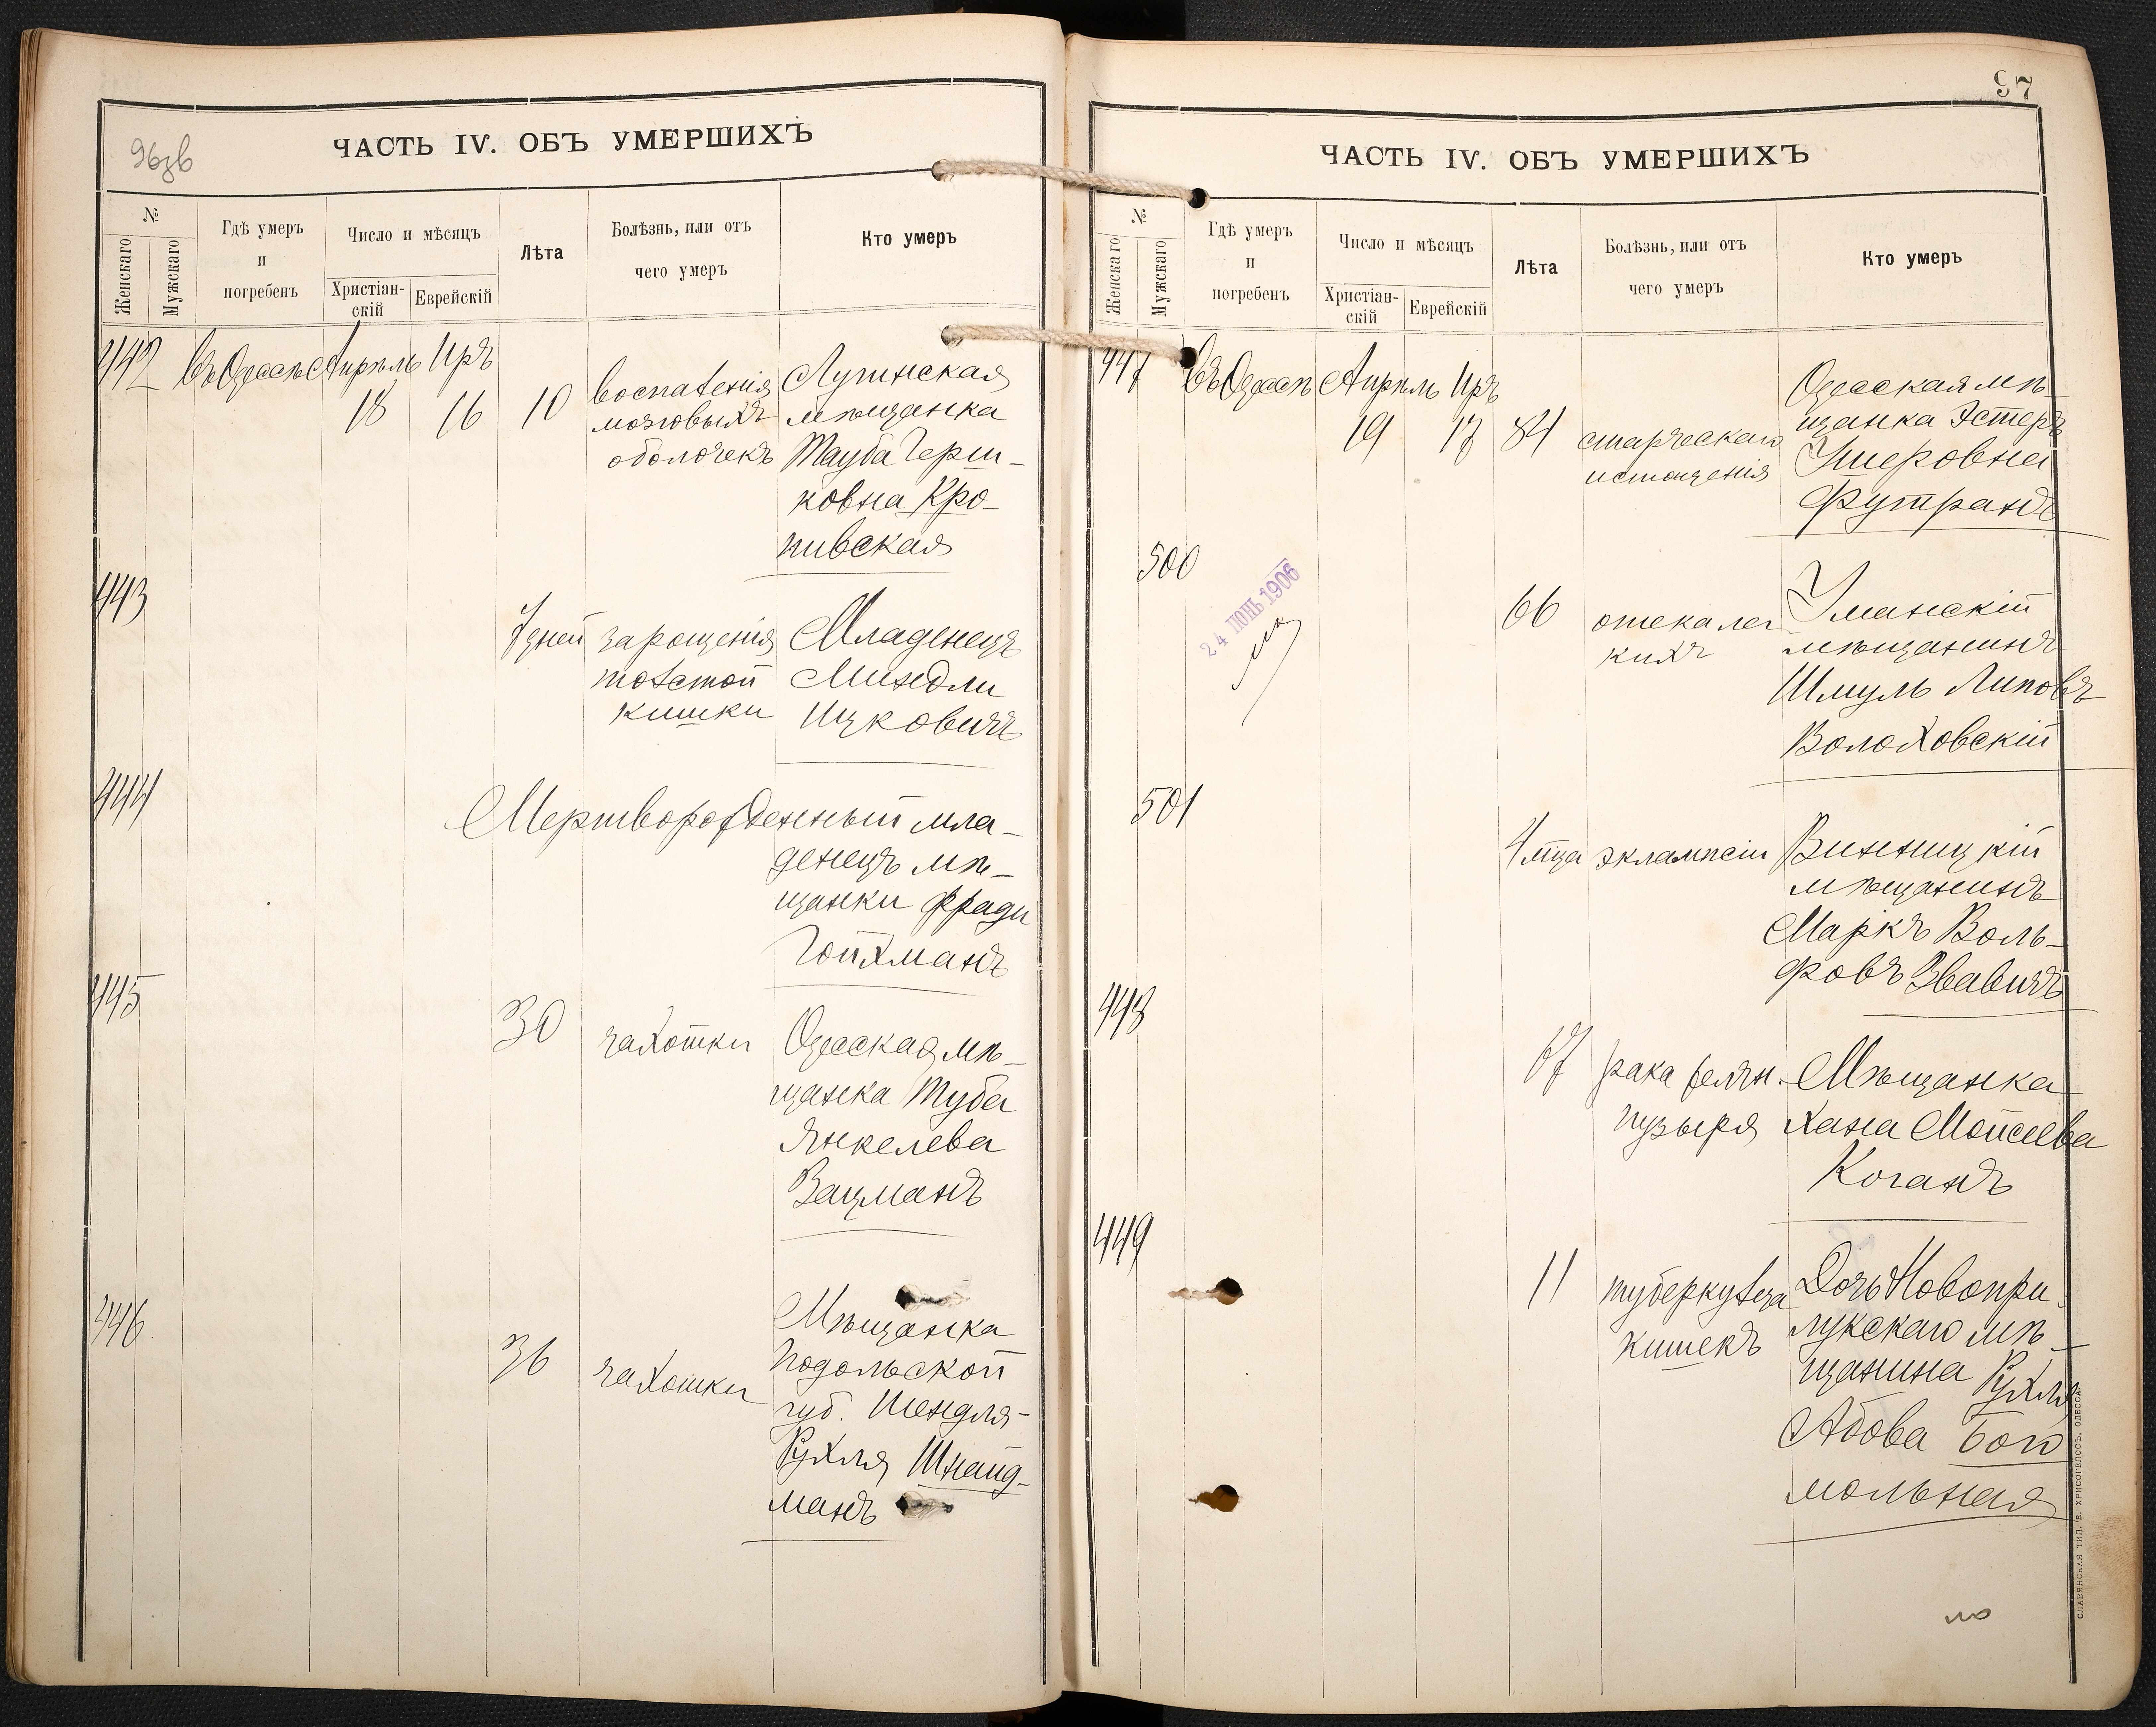 96зв
ЧАСТЬ IV. ОБЪ УМЕРШИХЪ
№
Женскаго
Мужскаго
Гдѣ умеръ
и
погребенъ
Число и мѣсяцъ
Христіан-
скій
Еврейскій
Лѣта
Болѣзнь, или отъ
чего умеръ
Кто умеръ
442 въ Одессѣ Апрѣль Иръ
18 16 10
воспаленія
мозговыхъ
оболочекъ
мѣщанка
Тауба Герш-
ковна Кро-
пивская
443
7 дней
зарощенія
толстой
кишки
Младенецъ
Миндли
Ицковичъ
444
Мертворожденный мла-
денецъ мѣ-
щанки Фради
Гойхманъ
445
30 чахотки
Одесская мѣ-
щанка Туба
Янкелева
Вацманъ
446
36 чахотки
Мѣщанка
Подольской
губ. Шендля-
Рухля Шнайд-
манъ
97
ЧАСТЬ IV. ОБЪ УМЕРШИХЪ
№
Женскаго
Мужскаго
Гдѣ умеръ
и
погребенъ
Число и мѣсяцъ
Христіан-
скій
Еврейскій
Лѣта
Болѣзнь, или отъ
чего умеръ
Кто умеръ
447 въ Одессѣ Апрѣль Иръ
19 17 84
старческаго
истощенія
Одесская мѣ-
щанка Эстеръ
Ушеровна
Футранъ
500
24 ІЮНЬ 1906
66
отека лег
кихъ
Уманскій
мѣщанинъ
Шмуль Липовъ
Волоховскій
501
4 мца эклампсіи
Винницкій
мѣщанинъ
Маркъ Воль-
фовъ Звавичъ
448
67
рака желчн.
пузыря
Мѣщанка
Хана Мойсеева
Коганъ
449
11
туберкулеза
кишекъ
Дочь Новопри-
лукскаго мѣ-
щанина Рухля
Абова Бого
мольная
СЛАВЯНСКАЯ ТИП. Е. ХРИСОГЕЛОСЪ, ОДЕССА.